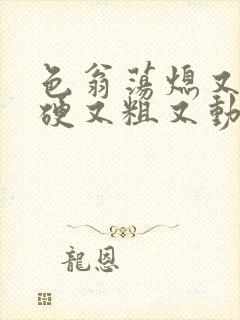 色翁蕩熄又
硬又粗又動
龍恩